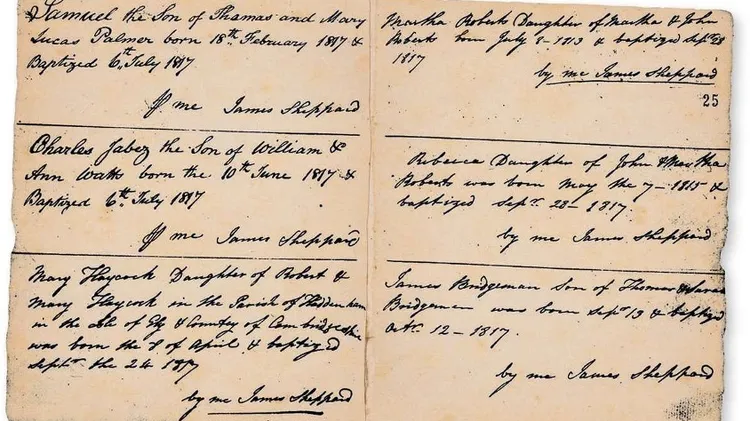 Samuel the Son of Thomas and Mary
Lucas Palmer born 18th February 1817 &
Baptized 6th July 1817
me James Sheppard
Charles Jabez the Son of William &
Ann Watts born the 10th June 1817 &
Baptized 6th July 1817
me James Sheppard
Mary Haycock Daughter of Robert &
Mary Haycock in the Parish of Haddenham
in the Isle of Ely & Country of Cambridgeshire
was born the of April & baptized
Septr the 24 1817
by me James Sheppard
Martha Roberts Daughter of Martha & John
Roberts born July 8 - 1813 & baptized Sepr 28
1817
by me James Sheppard
25
Rebecca Daughter of John & Martha
Roberts was born May the 7 - 1815 &
baptized Sepr 28 - 1817.
by me James Sheppard
James Bridgeman Son of Thomas & Sarah
Bridgeman was born Sepr 13 & baptized
Octr 12 - 1817.
by me James Sheppard